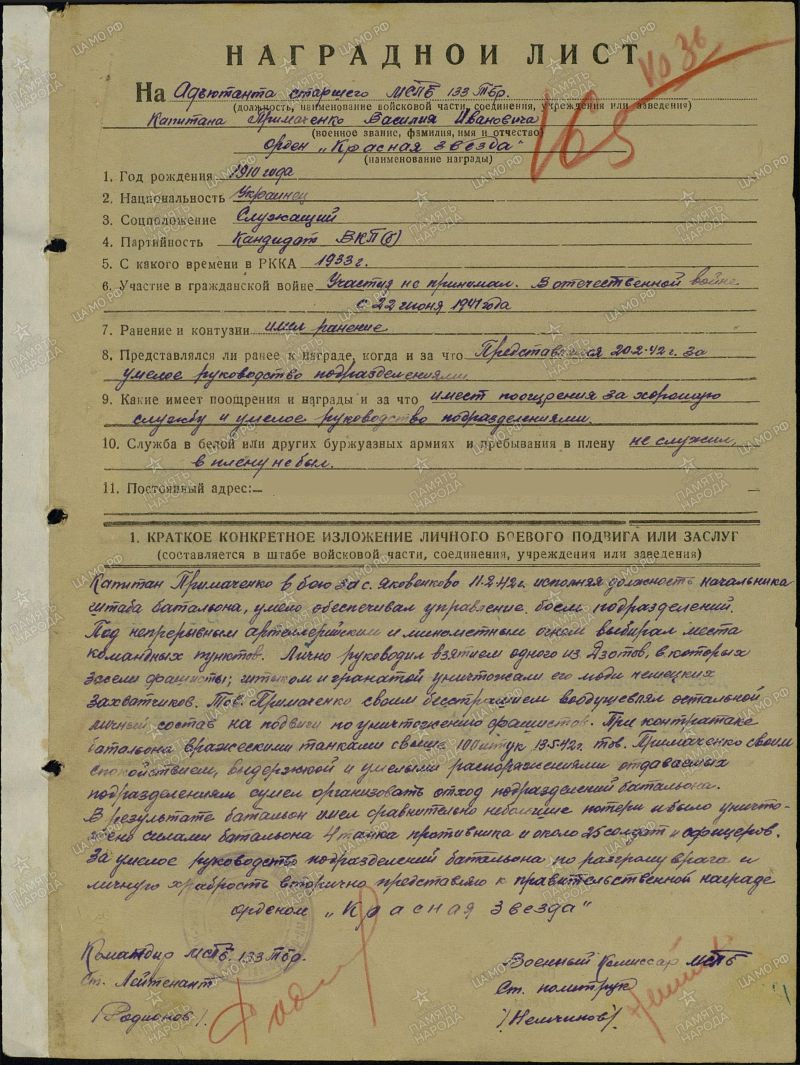 НАГРАДНОЙ ЛИСТ
На Адъютанта старшего МСПБ 133 Тбр.
(должность, наименование войсковой части, соединения, учреждения или заведения)
Капитана Примаченко Василия Ивановича
(военное звание, фамилия, имя и отчество)
Орден „Красная звезда“
(наименование награды)
165
1. Год рождения 1910 года
2. Национальность Украинец
3. Соцположение Служащий
4. Партийность Кандидат ВКП(б)
5. С какого времени в РККА 1933 г.
6. Участие в гражданской войне Участия не принимал. В отечественной войне
с 22 июня 1941 года
7. Ранение и контузии имел ранение
8. Представлялся ли ранее к награде, когда и за что Представлялся 20.2.42 г. за
умелое руководство подразделениями
9. Какие имеет поощрения и награды и за что имеет поощрения за хорошую
службу и умелое руководство подразделениями.
10. Служба в белой или других буржуазных армиях и пребывания в плену не служил,
в плену не был.
11. Постоянный адрес:—
1. КРАТКОЕ КОНКРЕТНОЕ ИЗЛОЖЕНИЕ ЛИЧНОГО БОЕВОГО ПОДВИГА ИЛИ ЗАСЛУГ
(составляется в штабе войсковой части, соединения, учреждения или заведения)
Капитан Примаченко в бою за с. Яковенково 11.2.42 г. исполняя должность начальника
штаба батальона, умело обеспечивал управление боем подразделений.
Под непрерывным артеллерийским и минометным огнем выбирал места
командных пунктов. Лично руководил взятием одного из Дзотов, в которых
засели фашисты; штыком и гранатой уничтожали его люди немецких
захватчиков. Тов. Примаченко своим бесстрашием воодушевлял остальной
личный состав на подвиги по уничтожению фашистов. При контратаке
батальона вражескими танками свыше 100 штук 13.5.42 г. тов. Примаченко своим
спокойствием, выдержкой и умелыми распоряжениями отдаваемых
подразделениям сумел организовать отход подразделений батальона.
В результате батальон имел сравнительно небольшие потери и было уничто-
жено силами батальона 4 танка противника и около 25 солдат и офицеров.
За умелое руководство подразделений батальона по разгрому врага и
личную храбрость вторично представляю к правительственной награде
орденом „Красная звезда“
Командир МСПБ 133 Тбр. Военный Комиссар МСПБ
Ст. Лейтенант Ст. политрук
/Родионов/. /Немчинов/
ПАМЯТЬ НАРОДА
ЦАМО.РФ